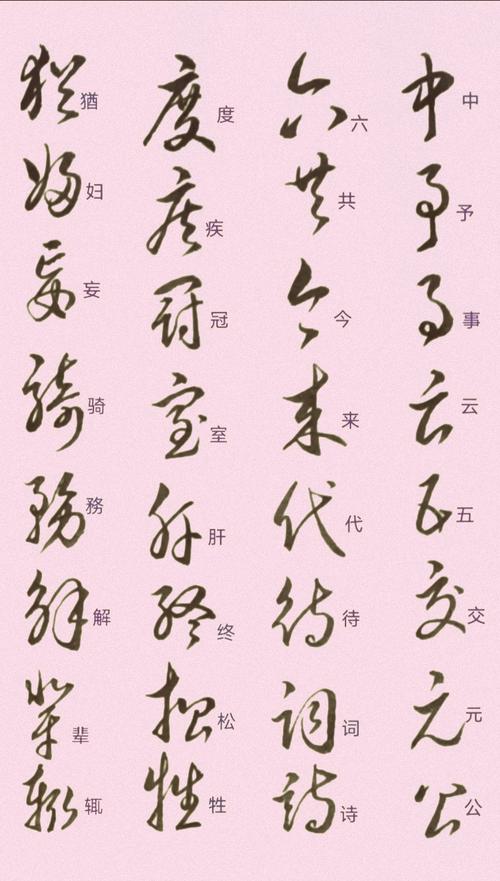 中
予
事
云
五
交
元
公
六
共
今
来
代
待
词
诗
度
疾
冠
室
肝
终
松
牲
猶
妇
妄
骑
務
解
辈
辄